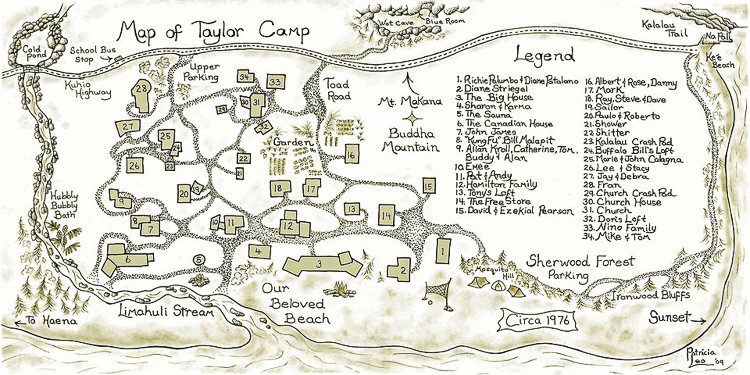 Map of Taylor Camp
Cold Pond
School Bus Stop
Kuhio Highway
Upper Parking
Wet Cave
Blue Room
Kalalau Trail
Na Pali
Ke'e Beach
Toad Road
Mt. Makana
Buddha Mountain
Garden
Hubbly Bubbly Bath
Limahuli Stream
To Haena
Our Beloved Beach
Mosquito Hill
Sherwood Forest
Parking
Ironwood Bluffs
Circa 1976
Sunset
Patricia Leo '09
Legend
1. Richie Palumbo & Diane Patalano
2. Diane Striegel
3. The Big House
4. Sharon & Karma
5. The Sauna
6. The Canadian House
7. John Jones
8. "KungFu" Bill Malapit
9. Allan Kroll, Catherine, Tom, Buddy & Alan
10. Emee
11. Pat & Andy
12. Hamilton Family
13. Tony's Loft
14. The Free Store
15. David & Ezekial Pearson
16. Albert & Rose, Danny
17. Mark
18. Roy, Steve & Dave
19. Sailor
20. Paulo & Roberto
21. Shower
22. Shitter
23. Kalalau Crash Pad
24. Buffalo Bill's Loft
25. Marie & John Calagna
26. Lee & Stacy
27. Jay & Debra
28. Fran
29. Church Crash Pad
30. Church House
31. Church
32. Don's Loft
33. Nino Family
34. Mike & Tom
28
27
25
26
34
33
31
30
22
16
20
18
17
15
9
8
7
11
12
13
14
6
5
4
3
2
1